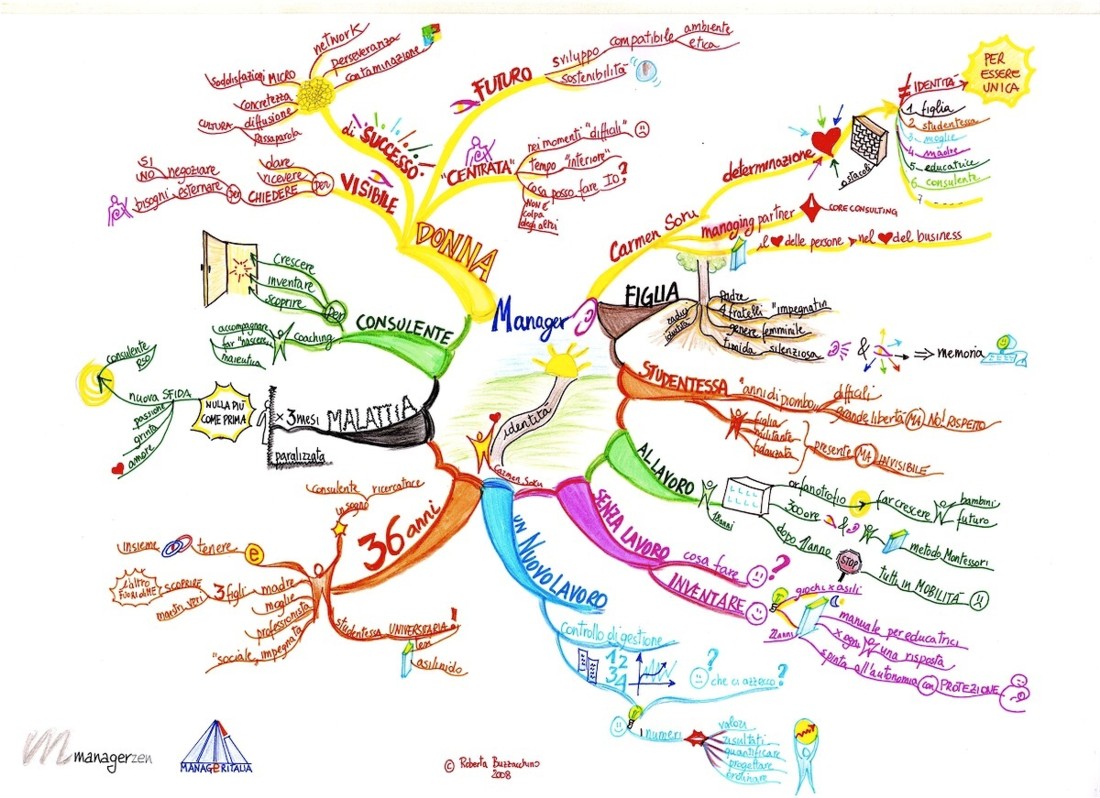 Manager
identità
Carmen Soru
Carmen Soru
determinazione
ostacoli
≠ IDENTITÀ
PER
ESSERE
UNICA
1 figlia
2 studentessa
3 moglie
4 madre
5 educatrice
6 consulente
7
managing partner
CORE CONSULTING
il delle persone nel del business
FIGLIA
radici
identità
Padre
4 fratelli "impegnati"
genere femminile
timida silenziosa
& ⇒ memoria
STUDENTESSA
"anni di piombo"
difficili
grande libertà MA NO! RISPETTO
figlia
militante
fidanzata
presente MA INVISIBILE
AL LAVORO
18 anni
orfanotrofio
far crescere
bambini
futuro
300 ore & metodo Montessori
dopo 11 anni
STOP
tutti in MOBILITÀ
SENZA LAVORO
cosa fare ?
INVENTARE
giochi x asili
22 anni
manuale per educatrici
x ogni una risposta
spinta all'autonomia con PROTEZIONE
UN NUOVO LAVORO
controllo di gestione
12
34
? che ci azzecco?
i numeri
valori
risultati
quantificare
progettare
ordinare
36 anni
consulente ricercatore
in sogno
insieme tenere e
l'altro
FUORI di ME
SCOPRIRE
maestri veri
3 figli
madre
moglie
professionista
"sociale, impegnata"
studentessa UNIVERSITARIA!
asilo nido
MALATTIA
x 3 mesi
paralizzata
NULLA PIÙ
COME PRIMA
nuova SFIDA
consulente
RSO
passione
grinta
amore
CONSULENTE
per
crescere
inventare
scoprire
coaching
accompagnare
far "nascere"
maieutica
DONNA
VISIBILE
per
dare
ricevere
CHIEDERE
se
SI
NO
negoziare
bisogni esternare
di SUCCESSO
network
perseveranza
contaminazione
soddisfazioni MICRO
concretezza
CULTURA
diffusione
passaparola
FUTURO
sviluppo compatibile
ambiente
etica
sostenibilità
"CENTRATA"
nei momenti "difficili"
tempo "interiore"
Cosa posso fare IO?
NON È
colpa
degli altri
managerzen
MANAGERITALIA
© Roberta Buzzacchino
2008